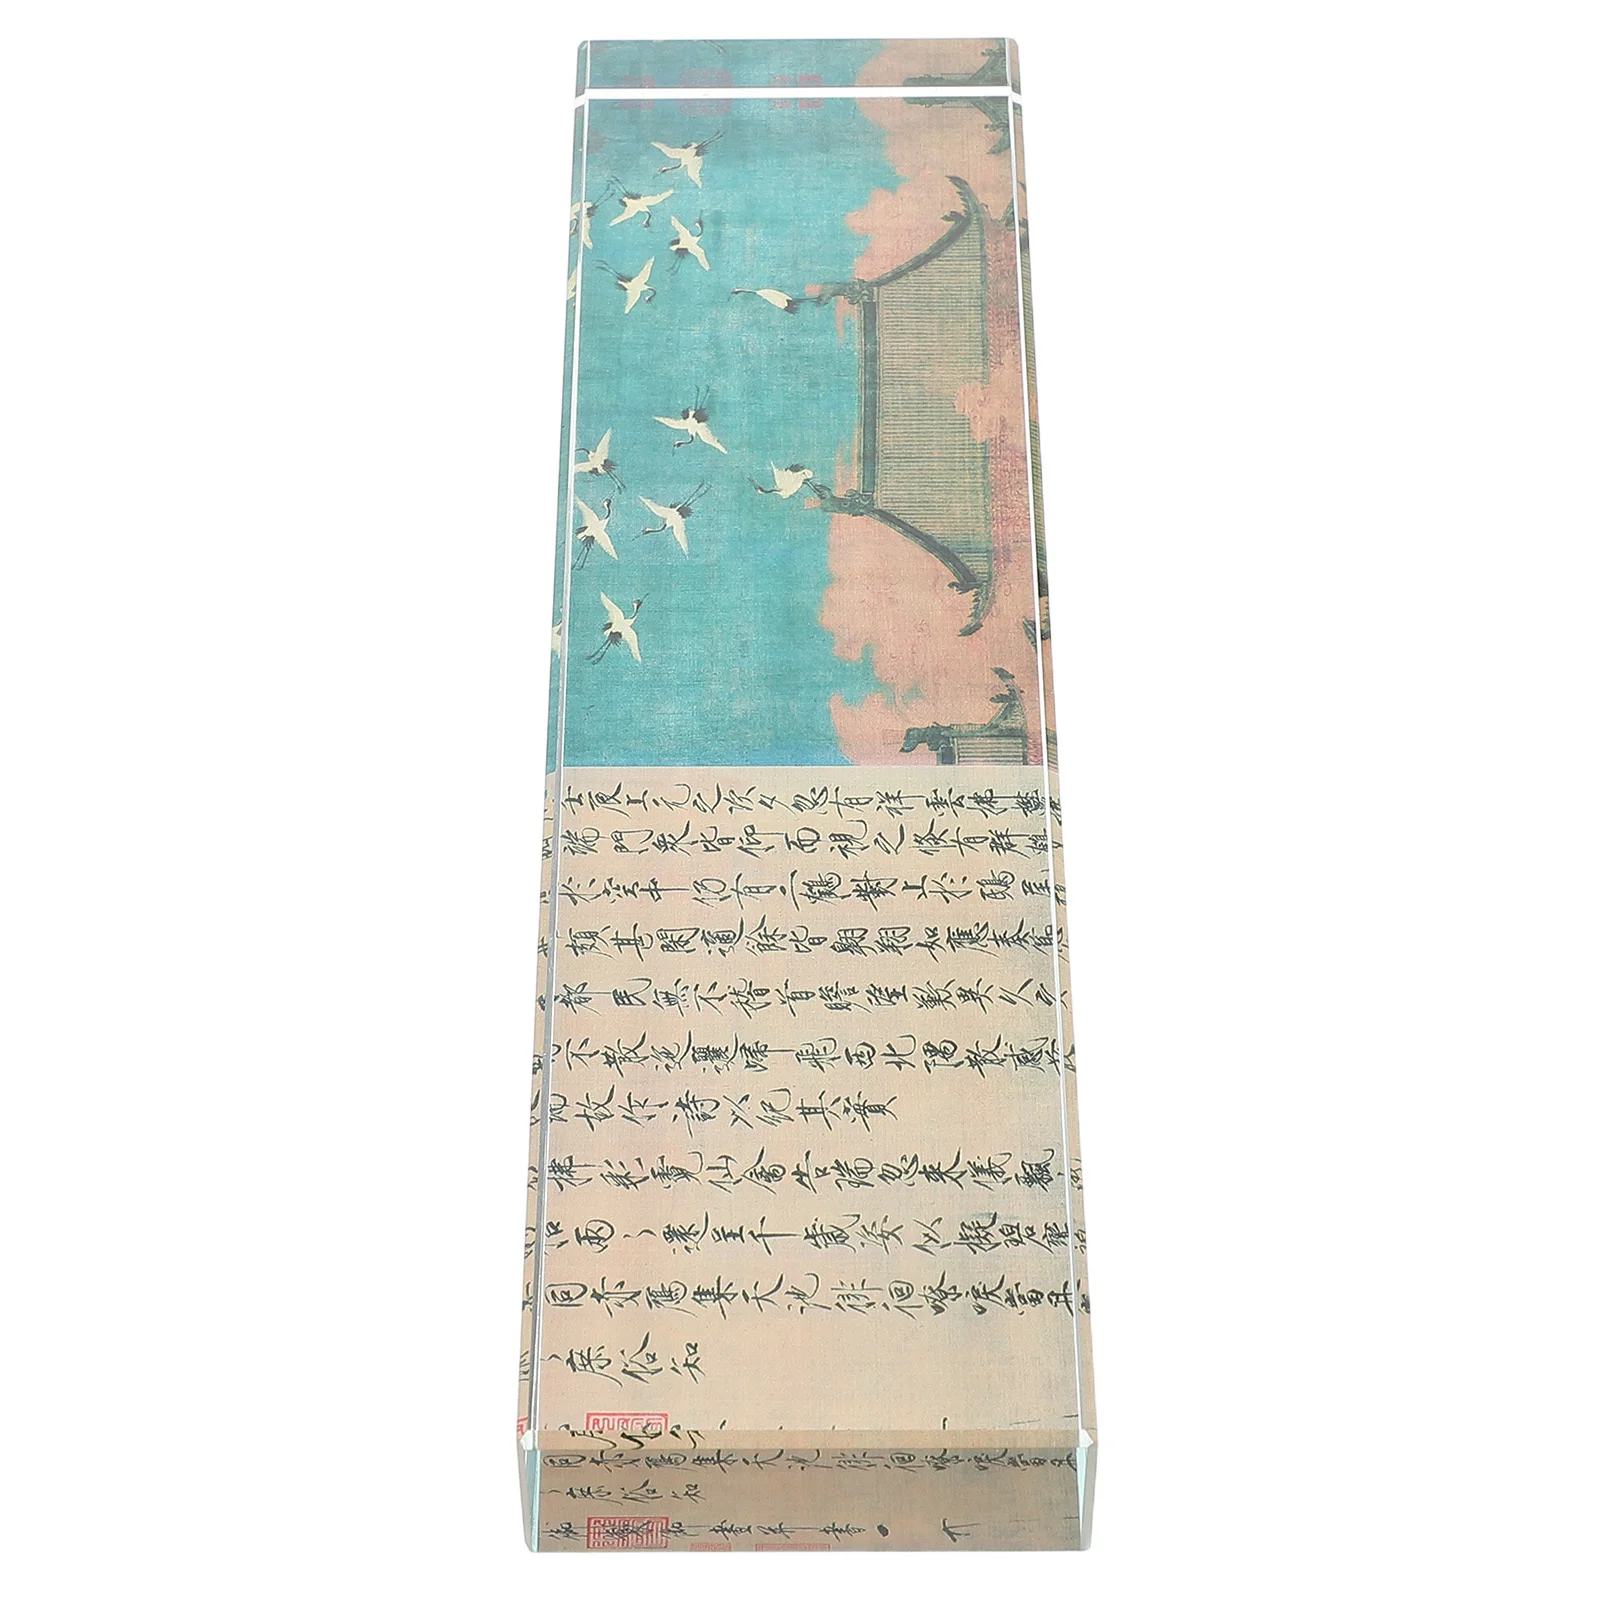 壬辰上元之次夕忽有祥雲拂鬱
端門衆皆仰而視之倏有群鶴
於空中仍有二鶴對止於鴟尾
頗甚閑適餘皆翱翔如應奏節
都民無不稽首瞻望歎異久之
不散迤邐歸飛西北隅散感茲
故作詩以紀其實
拂彩霓仙禽告瑞忽來儀飄
侶兩〻還呈千歲姿似擬碧鸞
同赤鴈集天池徘徊嘹唳當丹
〻庶俗知
同赤鴈集天池徘徊嘹唳當丹
〻庶俗知
御畫并書